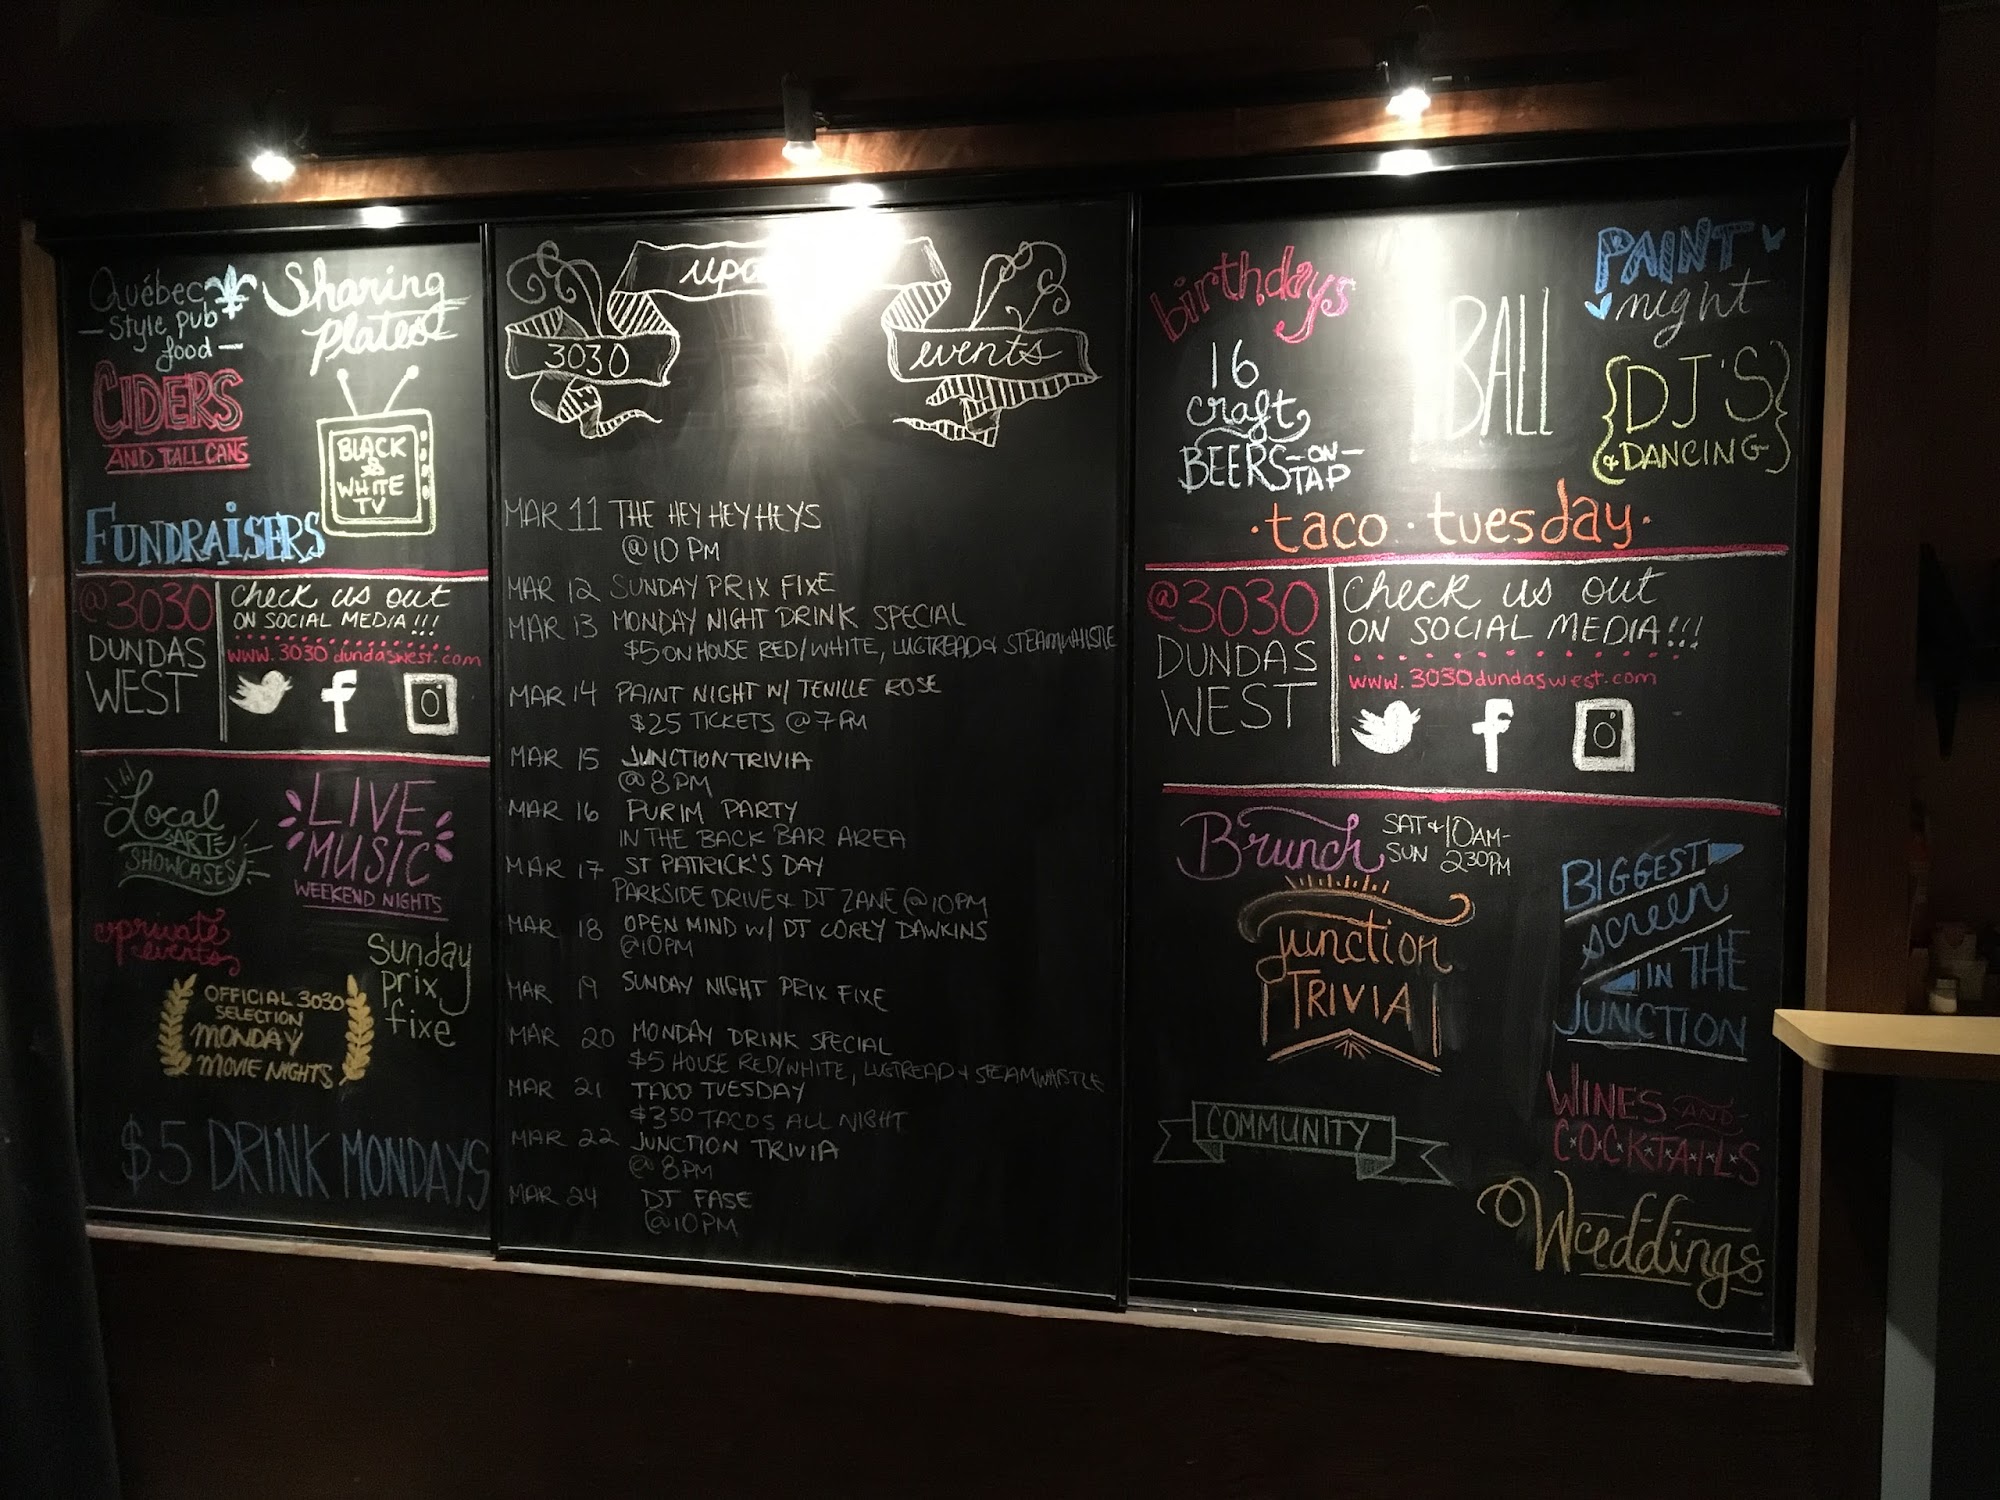 Québec
- Style pub
food -
Sharing
Plates
CIDERS
AND TALL CANS
BLACK
&
WHITE
TV
FUNDRAISERS
@3030
DUNDAS
WEST
Check us out
ON SOCIAL MEDIA!!!
www.3030dundaswest.com
f
Local
ART
SHOWCASES
LIVE
MUSIC
WEEKEND NIGHTS
private
events
Sunday
prix
fixe
OFFICIAL 3030
SELECTION
MONDAY
MOVIE NIGHTS
$5 DRINK MONDAYS
3030
events
MAR 11 THE HEY HEY HEYS
@10 PM
MAR 12 SUNDAY PRIX FIXE
MAR 13 MONDAY NIGHT DRINK SPECIAL
$5 ON HOUSE RED/WHITE, LUGTREAD & STEAMWHISTLE
MAR 14 PAINT NIGHT W/ TENILLE ROSE
$25 TICKETS @ 7PM
MAR 15 JUNCTION TRIVIA
@8PM
MAR 16 PURIM PARTY
IN THE BACK BAR AREA
MAR 17 ST PATRICK'S DAY
PARKSIDE DRIVE & DJ ZANE @10PM
MAR 18 OPEN MIND W/ DJ COREY DAWKINS
@10PM
MAR 19 SUNDAY NIGHT PRIX FIXE
MAR 20 MONDAY DRINK SPECIAL
$5 HOUSE RED/WHITE, LUGTREAD & STEAMWHISTLE
MAR 21 TACO TUESDAY
$3.50 TACOS ALL NIGHT
MAR 22 JUNCTION TRIVIA
@ 8PM
MAR 24 DJ FASE
@10PM
birthdays
BALL
PAINT
night
16
craft
BEERS -ON-
TAP
{DJ'S}
{& DANCING}
·taco·tuesday·
@3030
DUNDAS
WEST
Check us out
ON SOCIAL MEDIA!!!
www.3030dundaswest.com
f
Brunch SAT & SUN 10AM-230PM
junction
TRIVIA
BIGGEST
screen
IN THE
JUNCTION
COMMUNITY
WINES AND
COCKTAILS
Weddings